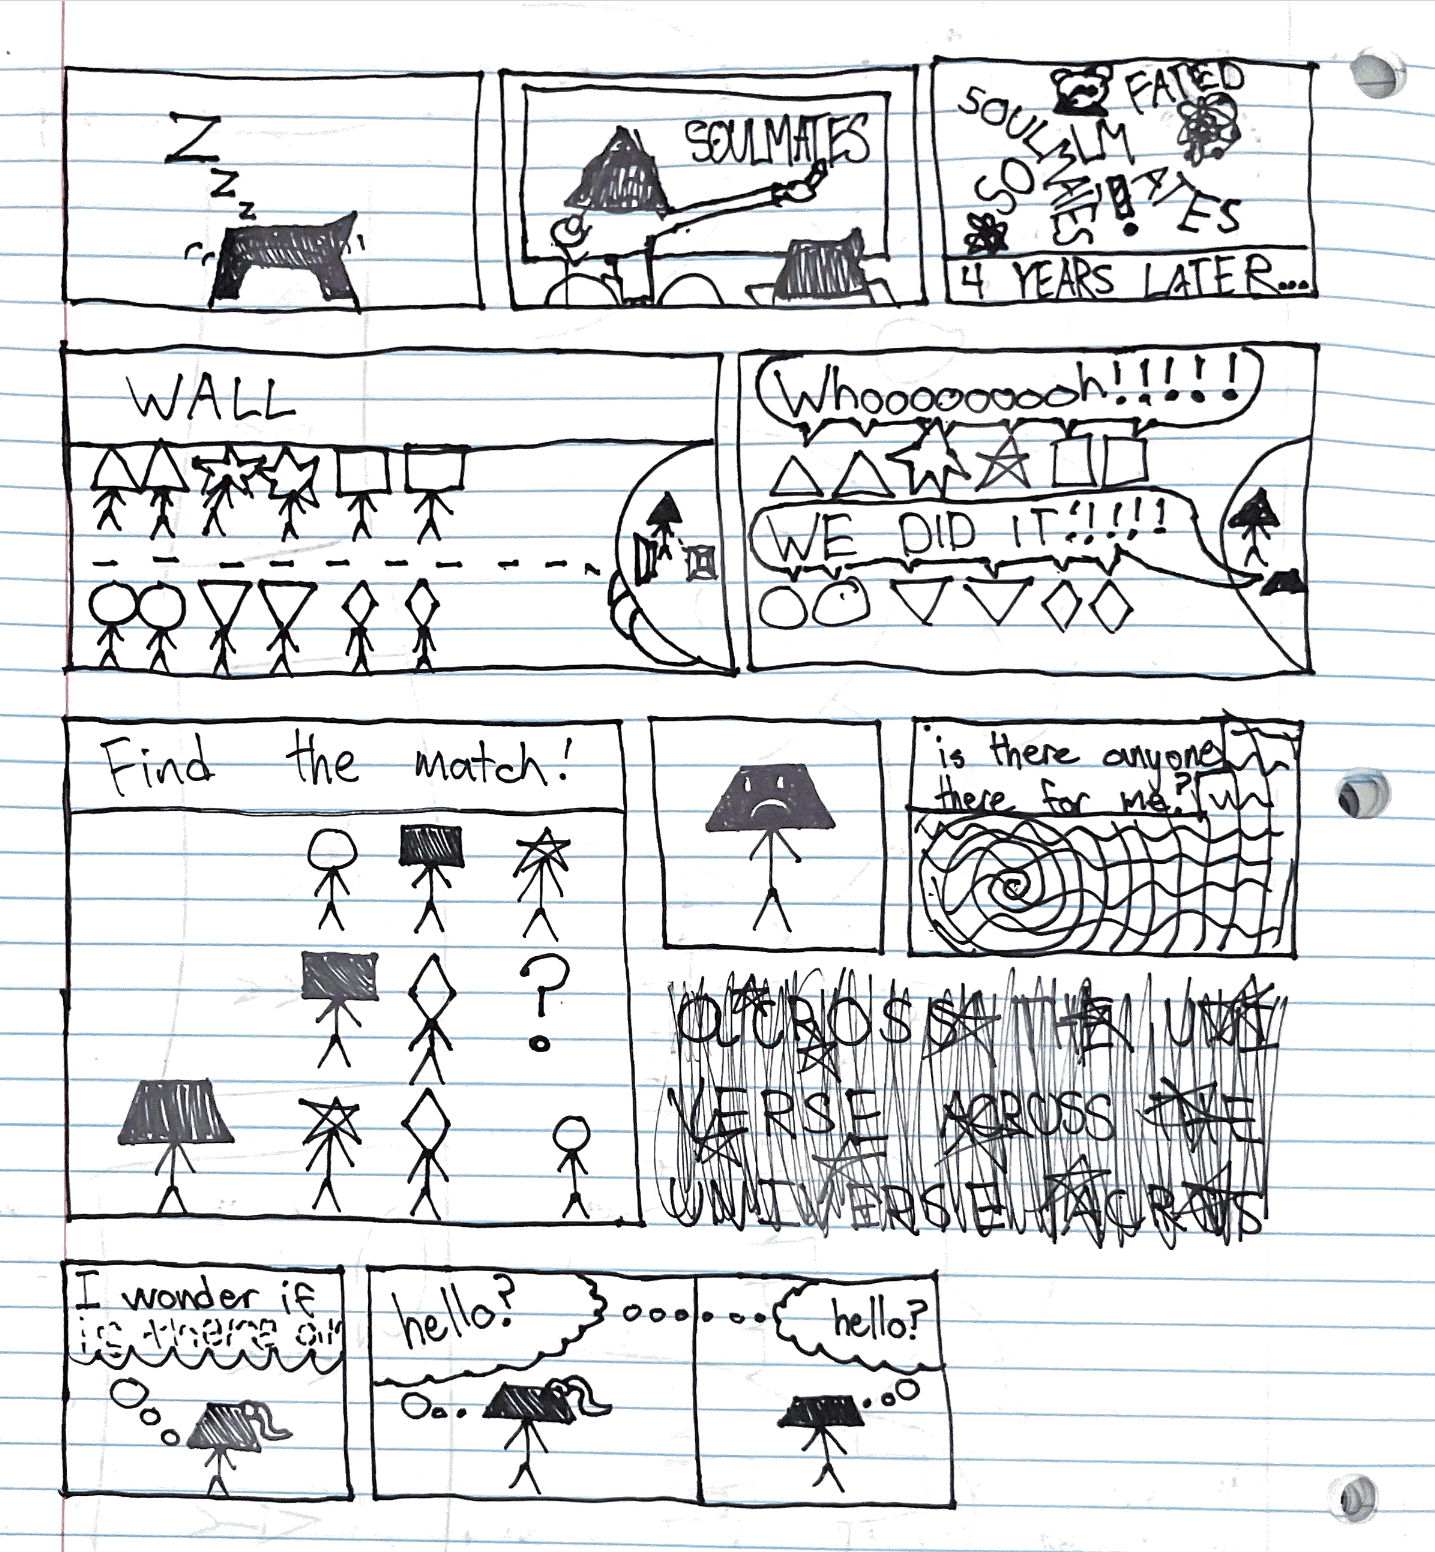 Z
Z
Z
SOULMATES
FATED
SOULMATES
SOULM
!
ATES
4 YEARS LATER...
WALL
Whooooooooh!!!!!
WE DID IT!!!!!
Find the match!
?
is there anyone
there for me?
ACROSS THE UNI
VERSE ACROSS THE
UNIVERSE ACR
I wonder if
is there an
hello?
hello?